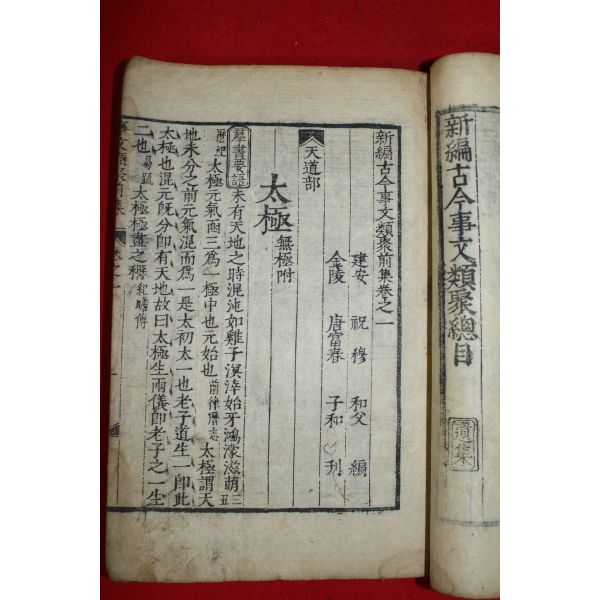 新編古今事文類聚總目
遺集
新編古今事文類聚前集卷之一
建安 祝穆 和父 編
金陵 唐富春 子和 刋
天道部
太極 無極附
羣書要語 未有天地之時混沌如雞子溟涬始牙鴻濛滋萌 三五
曆紀 太極元氣函三爲一極中也元始也 前律曆志 太極謂天
地未分之前元氣混而爲一是太初太一也老子道生一卽此
太極也混元旣分卽有天地故曰太極生兩儀卽老子之一生
二也 易䟽 太極極盡之稱 紀瞻傳
事文類聚前集 卷之一